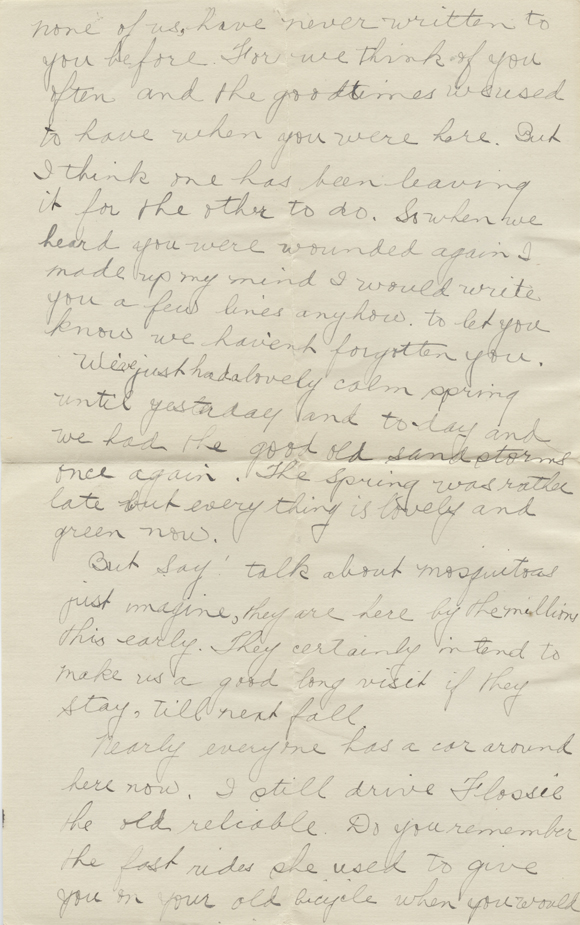 none of us, have never written to
you before. For we think of you
often and the goodtimes we used
to have when you were here. But
I think one has been leaving
it for the other to do. So when we
heard you were wounded again I
made up my mind I would write
you a few lines anyhow. to let you
know we havent forgotten you.
We've just had a lovely calm spring
until yesterday and to-day and
we had the good old sandstorms
once again. The spring was rather
late but everything is lovely and
green now.
But Say! talk about mosquitoes
just imagine, they are here by the millions
this early. They certainly intend to
make us a good long visit if they
stay, till next fall.
Nearly everyone has a car around
here now. I still drive Flossie
the old reliable. Do you remember
the fast rides she used to give
you on your old bicycle when you would